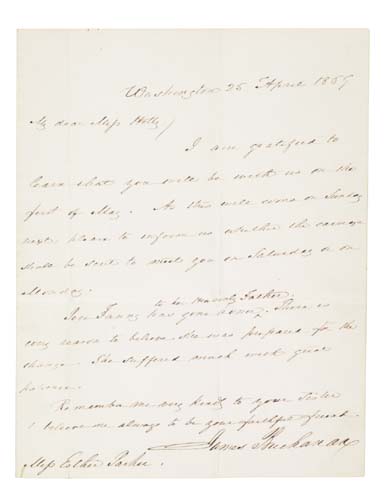 Washington 25 April 1859
My dear Miss Hetty/
I am gratified to
learn that you will be with us on the
first of May. As this will come on Sunday
next please to inform us whether the carriage
shall be sent to meet you on Saturday or on
Monday.
to her Heavenly Father
Poor Fanny has gone home. There is
every reason to believe she was prepared for the
change. She suffered much with great
patience.
Remember me very kindly to your Sister
& believe me always to be your faithful friend
James Buchanan
Miss Esther Parker.